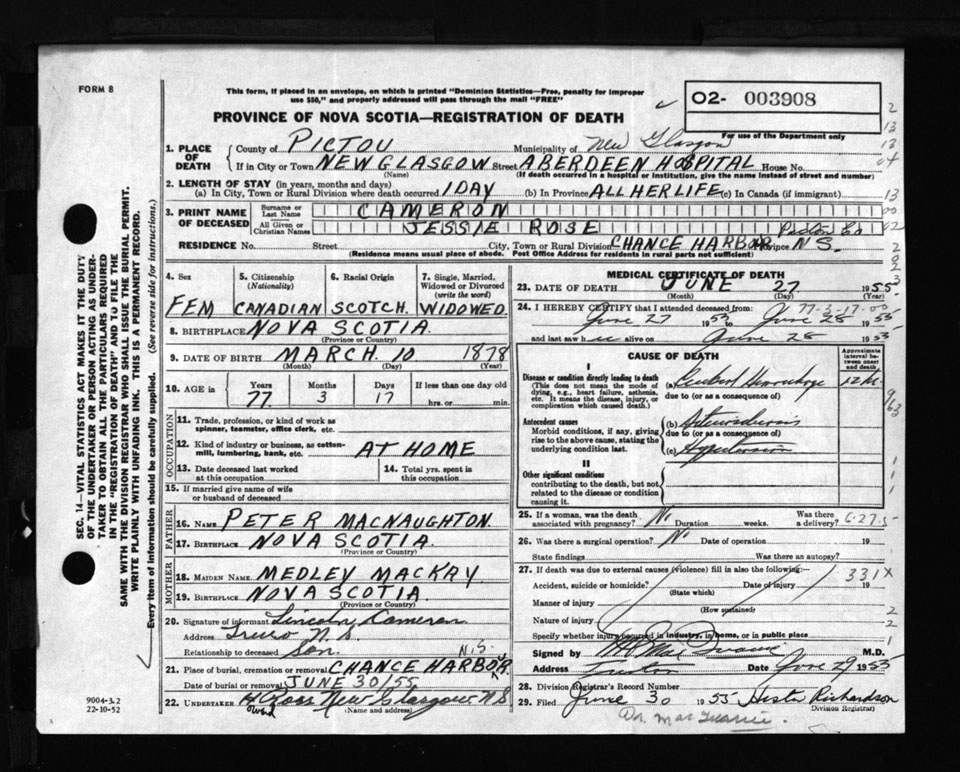 FORM 8
This form, if placed in an envelope, on which is printed "Dominion Statistics—Free, penalty for improper
use $50," and properly addressed will pass through the mail "FREE"
PROVINCE OF NOVA SCOTIA—REGISTRATION OF DEATH
O2- 003908
For use of the Department only
1. PLACE OF DEATH
County of PICTOU Municipality of New Glasgow
If in City or Town NEW GLASGOW Street ABERDEEN HOSPITAL House No.
(Name) (If death occurred in a hospital or institution, give the name instead of street and number)
2. LENGTH OF STAY (in years, months and days)
(a) In City, Town or Rural Division where death occurred 1 DAY (b) In Province ALL HER LIFE (c) In Canada (if immigrant)
3. PRINT NAME OF DECEASED
Surname or Last Name CAMERON
All Given or Christian Names JESSIE ROSE
Pictou Co
RESIDENCE No. Street City, Town or Rural Division CHANCE HARBOR Province N S.
(Residence means usual place of abode. Post Office Address for residents in rural parts not sufficient)
4. Sex FEM
5. Citizenship (Nationality) CANADIAN
6. Racial Origin SCOTCH
7. Single, Married, Widowed or Divorced (write the word) WIDOWED
8. BIRTHPLACE NOVA SCOTIA
(Province or Country)
9. DATE OF BIRTH MARCH 10 1878
(Month) (Day) (Year)
10. AGE in Years Months Days If less than one day old
77 3 17 hrs. or min.
OCCUPATION
11. Trade, profession, or kind of work as
spinner, teamster, office clerk, etc.
12. Kind of industry or business, as cotton-
mill, lumbering, bank, etc. AT HOME
13. Date deceased last worked
at this occupation
14. Total yrs. spent in
this occupation
15. If married give name of wife
or husband of deceased
FATHER
16. NAME PETER MACNAUGHTON
17. BIRTHPLACE NOVA SCOTIA
(Province or Country)
MOTHER
18. MAIDEN NAME MEDLEY MACKAY
19. BIRTHPLACE NOVA SCOTIA
(Province or Country)
20. Signature of informant Lincoln Cameron
Address Truro N.S.
Relationship to deceased Son.
21. Place of burial, cremation or removal CHANCE HARBOR N.S.
Date of burial or removal JUNE 30/55
22. UNDERTAKER H Ross New Glasgow N S
(Name and address)
MEDICAL CERTIFICATE OF DEATH
23. DATE OF DEATH JUNE 27 1955
(Month) (Day) (Year)
24. I HEREBY CERTIFY that I attended deceased from:
June 27 1955 to June 28 1955
and last saw h alive on June 28 1955
CAUSE OF DEATH
Approximate interval between onset and death
I
Disease or condition directly leading to death
(This does not mean the mode of dying, e.g., heart failure, asthenia, etc. It means the disease, injury, or complication which caused death.)
(a) Cerebral Hemorrhage 12 hr.
due to (or as a consequence of)
Antecedent causes
Morbid conditions, if any, giving rise to the above cause, stating the underlying condition last.
(b) Arteriosclerosis
due to (or as a consequence of)
(c) Hypertension
II
Other significant conditions
contributing to the death, but not related to the disease or condition causing it.
25. If a woman, was the death
associated with pregnancy? No Duration weeks. Was there a delivery?
26. Was there a surgical operation? No Date of operation 19
State findings Was there an autopsy?
27. If death was due to external causes (violence) fill in also the following:—
331X
Accident, suicide or homicide? Date of injury 19
(State which)
Manner of injury
(How sustained)
Nature of injury
Specify whether injury occurred in industry, in home, or in public place
Signed by M.D.
Address Date June 29 1955
28. Division Registrar's Record Number
29. Filed June 30 1955 Hester Richardson
(Division Registrar)
SEC. 14—VITAL STATISTICS ACT MAKES IT THE DUTY
OF THE UNDERTAKER OR PERSON ACTING AS UNDER-
TAKER TO OBTAIN ALL THE PARTICULARS REQUIRED
IN THE "REGISTRATION OF DEATH" AND TO FILE THE
SAME WITH THE DIVISION REGISTRAR WHO SHALL ISSUE THE BURIAL PERMIT.
WRITE PLAINLY WITH UNFADING INK. THIS IS A PERMANENT RECORD.
Every item of information should be carefully supplied. (See reverse side for instructions.)
9004-3.2
22-10-52